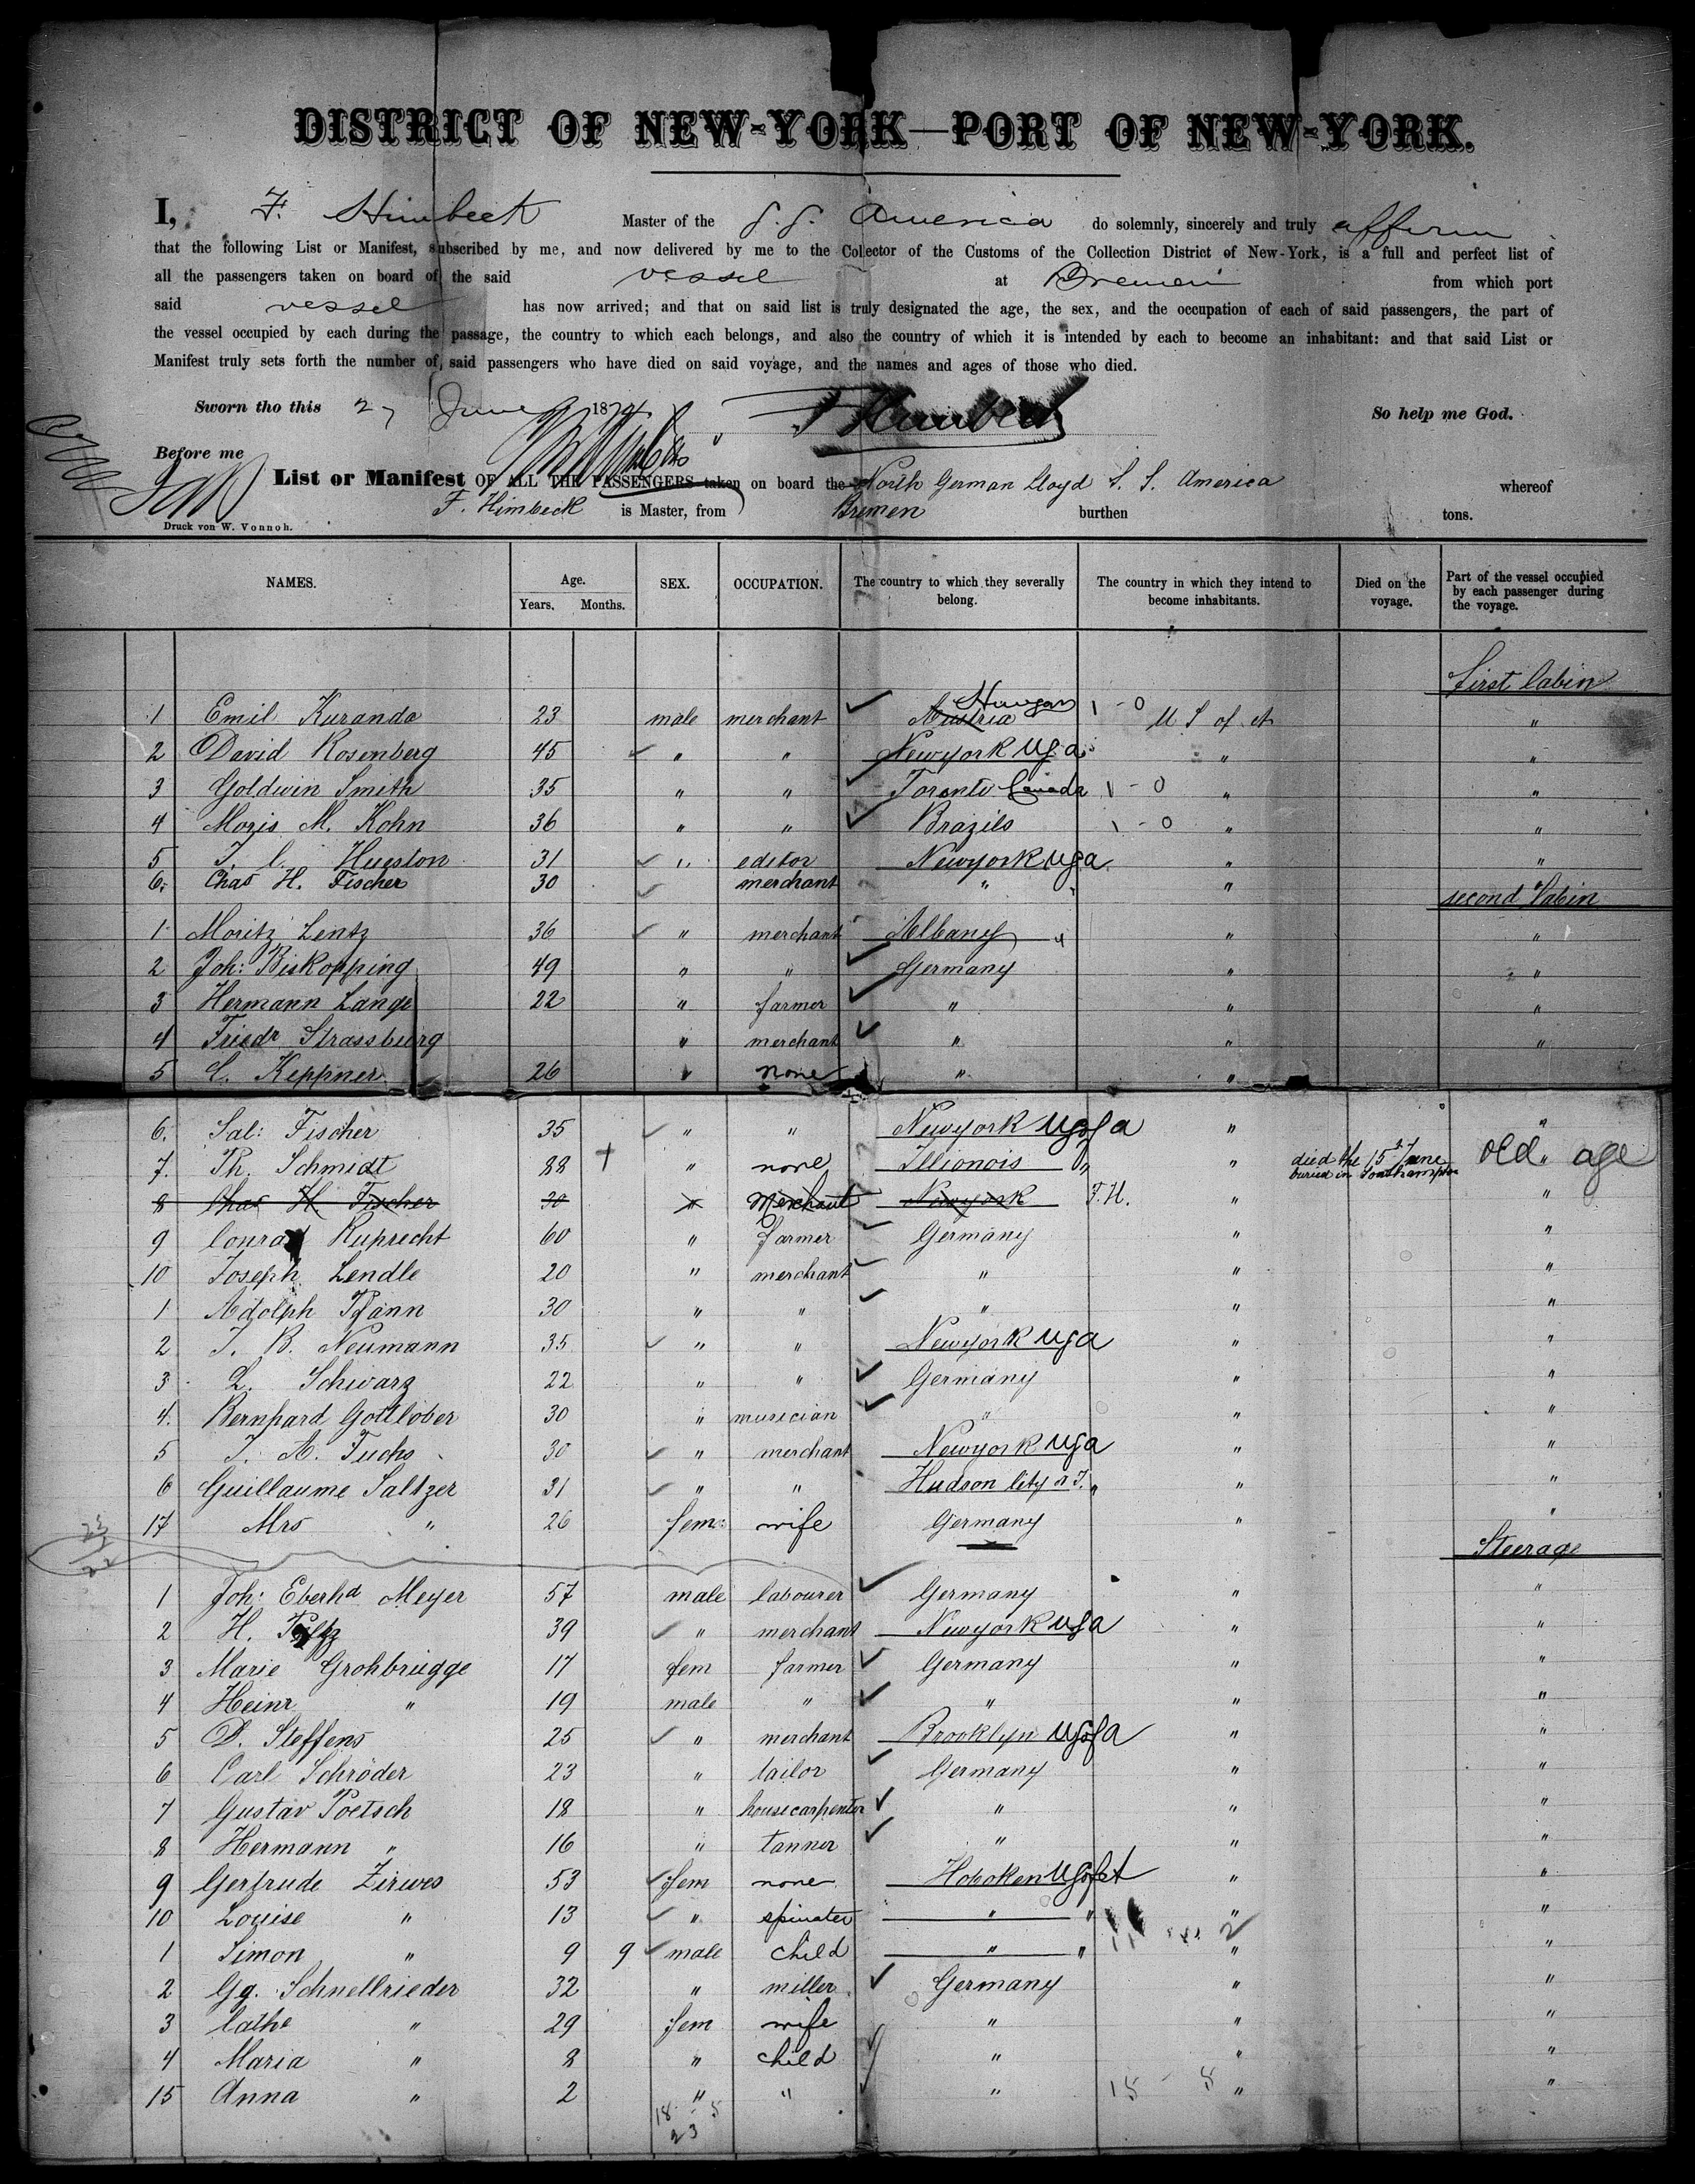 DISTRICT OF NEW-YORK—PORT OF NEW-YORK.
I, F. Himbeck Master of the S. S. America do solemnly, sincerely and truly affirm
that the following List or Manifest, subscribed by me, and now delivered by me to the Colector of the Customs of the Collection District of New-York, is a full and perfect list of
all the passengers taken on board of the said vessel at Bremen from which port
said vessel has now arrived; and that on said list is truly designated the age, the sex, and the occupation of each of said passengers, the part of
the vessel occupied by each during the passage, the country to which each belongs, and also the country of which it is intended by each to become an inhabitant: and that said List or
Manifest truly sets forth the number of said passengers who have died on said voyage, and the names and ages of those who died.
Sworn tho this 27 June 1874 F Himbeck So help me God.
Before me
List or Manifest OF ALL THE PASSENGERS taken on board the North German Lloyd S. S. America whereof
F. Himbeck is Master, from Bremen burthen tons.
Druck von W. Vonnoh.
NAMES. Age. Years. Months. SEX. OCCUPATION. The country to which they severally belong. The country in which they intend to become inhabitants. Died on the voyage. Part of the vessel occupied by each passenger during the voyage.
first Cabin
1 Emil Kuranda 23 male merchant Austria Hungary 1 - 0 U S of A "
2 David Rosenberg 45 " " Newyork USa " "
3 Goldwin Smith 35 " " Toronto Canada 1 - 0 " "
4 Moris M. Kohn 36 " " Brazils 1 - 0 " "
5 J. C. Hueston 31 " editor Newyork USa " "
6. Chas H. Fischer 30 merchant " " "
second Cabin
1 Moritz Lentz 36 " merchant Albany " " "
2 Joh: Biskopping 49 " " Germany " "
3 Hermann Lange 22 " farmer " " "
4 Friedr Strassburg " merchant " " "
5 C. Keppner 26 " none " "
6. Sal: Fischer 35 " " Newyork USofa " "
7. Th. Schmidt 88 + " none Illionois " " died the 15th June buried in Southampton old " age
8 Chas H Fischer 30 " Merchant Newyork F.H. " "
9 Conrad Ruprecht 60 " farmer Germany " "
10 Joseph Lendle 20 " merchant " " "
1 Adolph Pfann 30 " " " " "
2 J. B. Neumann 35 " " Newyork USa " "
3 L. Schwarz 22 " " Germany " "
4. Bernhard Gottlober 30 " musician " " "
5 J. A. Fuchs 30 " merchant Newyork USa " "
6 Guillaume Saltzer 31 " " Hudson City N J. " " "
17 Mrs " 26 fem: wife Germany " "
Steerage
1 Joh: Eberhd Meyer 57 male labourer Germany " "
2 H. 39 " merchant Newyork USa " "
3 Marie Grohbrugge 17 fem farmer Germany " "
4 Heinr " 19 male " " " "
5 D. Steffens 25 " merchant Brooklyn USofa " "
6 Carl Schröder 23 " tailor Germany " "
7 Gustav Poetsch 18 " housecarpenter " " "
8 Hermann " 16 " tanner " " "
9 Gertrude Zirwes 53 fem none Hoboken USofA " "
10 Louise " 13 " spinster " " " "
1 Simon " 9 9 male child " " " "
2 Gg. Schnellrieder 32 " miller Germany " "
3 Cathe " 29 fem wife " " "
4 Maria " 8 " child " " "
15 Anna " 2 " " " 15 - 8 " "
18 - 5
23